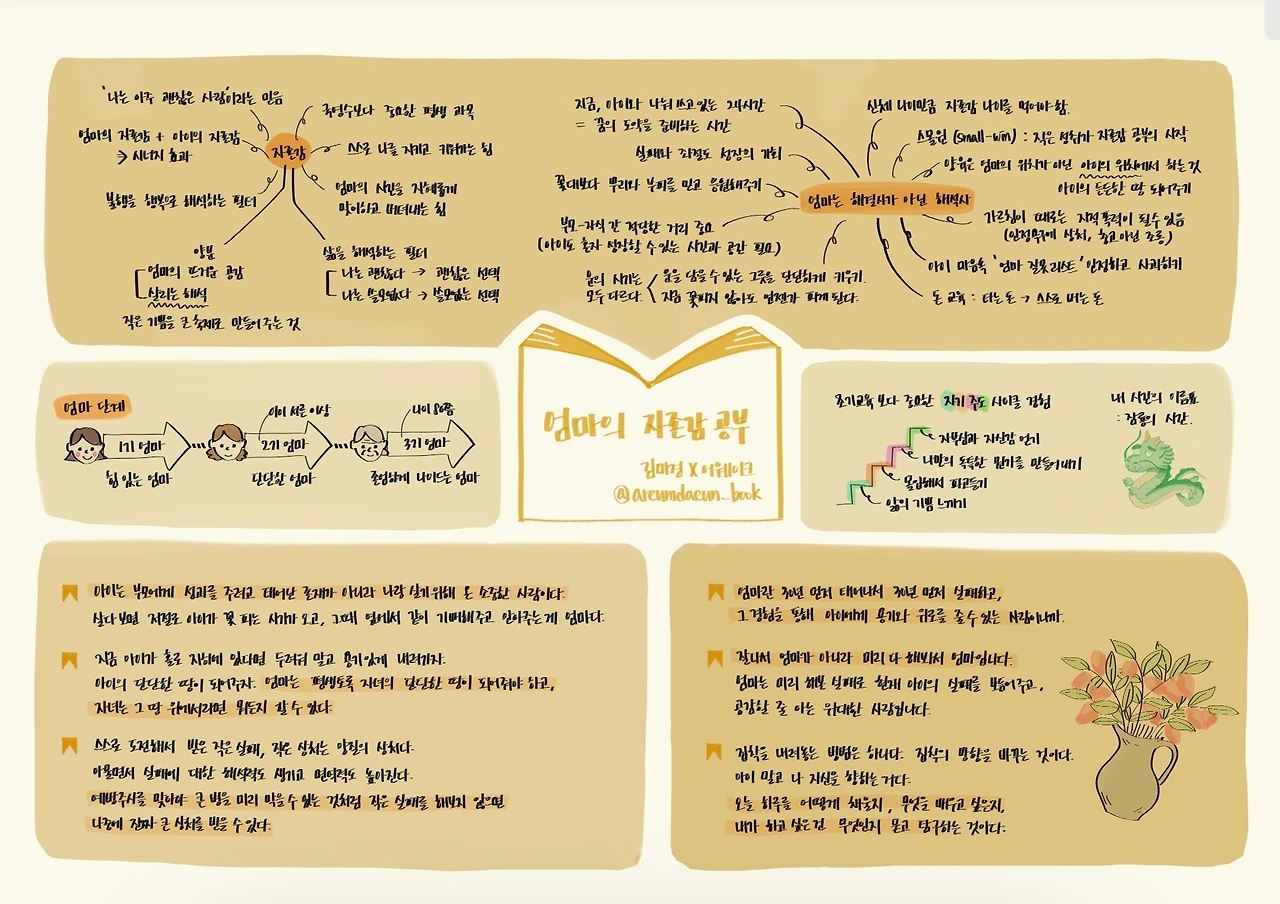 '나는 아주 괜찮은 사람'이라는 믿음
엄마의 자존감 + 아이의 자존감
⇒ 시너지 효과
불행을 행복으로 해석하는 필터
자존감
국영수보다 중요한 평생 과목
스스로 나를 지키고 키워가는 힘
엄마의 시간을 지혜롭게
맞이하고 버텨내는 힘
양분
엄마의 뜨거운 공감
살리는 해석
작은 기쁨을 큰 축제로 만들어주는 것
삶을 해석하는 필터
나는 괜찮다 → 괜찮은 선택
나는 쓸모없다 → 쓸모없는 선택
지금, 아이와 나눠 쓰고 있는 24시간
= 꿈의 도약을 준비하는 시간
실패와 좌절도 성장의 기회
꽃대보다 뿌리와 부피를 믿고 응원해주기
부모-자식 간 적당한 거리 중요
(아이도 혼자 성장할 수 있는 시간과 공간 필요)
운의 시기는
모두 다르다.
운을 담을 수 있는 그릇을 단단하게 키우기.
지금 꽃피지 않아도 언젠가 피게 된다.
엄마는 해결사가 아닌 해석사
신체 나이만큼 자존감 나이를 먹어야 함.
스몰윈 (small-win) : 작은 성취가 자존감 공부의 시작
양육은 엄마의 위치가 아닌 아이의 위치에서 하는 것
아이의 든든한 땅 되어주기
가르침이 때로는 지적 폭력이 될 수 있음
(인정욕구에 상처, 충고 아닌 조롱)
아이 마음속 '엄마 잘못 리스트' 인정하고 사과하기
돈 교육 : 타는 돈 → 스스로 버는 돈
엄마 단계
1기 엄마
힘 있는 엄마
아이 서른 이상
2기 엄마
단단한 엄마
나이 80쯤
3기 엄마
존엄하게 나이드는 엄마
엄마의 자존감 공부
김미경 X 어웨이크
@areumdaeun_book
조기교육보다 중요한 자기 주도 사이클 경험
자부심과 자신감 얻기
나만의 독특한 무기를 만들어내기
몰입해서 파고들기
앎의 기쁨 느끼기
내 시간의 이름표
: 잠룡의 시간.
아이는 부모에게 성과를 주려고 태어난 존재가 아니라 나랑 살기 위해 온 소중한 사람이다.
살다보면 저절로 아이가 꽃 피는 시기가 오고, 그때 옆에서 같이 기뻐해주고 안아주는 게 엄마다.
지금 아이가 홀로 지하에 있다면 두려워 말고 용기있게 내려가자.
아이의 단단한 땅이 되어주자. 엄마는 평생토록 자녀의 단단한 땅이 되어줘야 하고,
자녀는 그 땅 위에서라면 뭐든지 할 수 있다.
스스로 도전해서 받은 작은 실패, 작은 상처는 양질의 상처다.
아물면서 실패에 대한 해석력도 생기고 면역력도 높아진다.
예방주사를 맞아야 큰 병을 미리 막을 수 있는 것처럼 작은 실패를 해보지 않으면
나중에 진짜 큰 상처를 받을 수 있다.
엄마란 30년 먼저 태어나서 30년 먼저 실패하고,
그 경험을 통해 아이에게 용기와 위로를 줄 수 있는 사람이니까.
잘나서 엄마가 아니라 미리 다 해봐서 엄마입니다.
엄마는 미리 해본 실패로 현재 아이의 실패를 보듬어주고,
공감할 줄 아는 위대한 사람입니다.
집착을 내려놓는 방법은 하나다. 집착의 방향을 바꾸는 것이다.
아이 말고 나 자신을 향하는 거다.
오늘 하루를 어떻게 채울지, 무엇을 배우고 싶은지,
내가 하고 싶은 건 무엇인지 묻고 탐구하는 것이다.